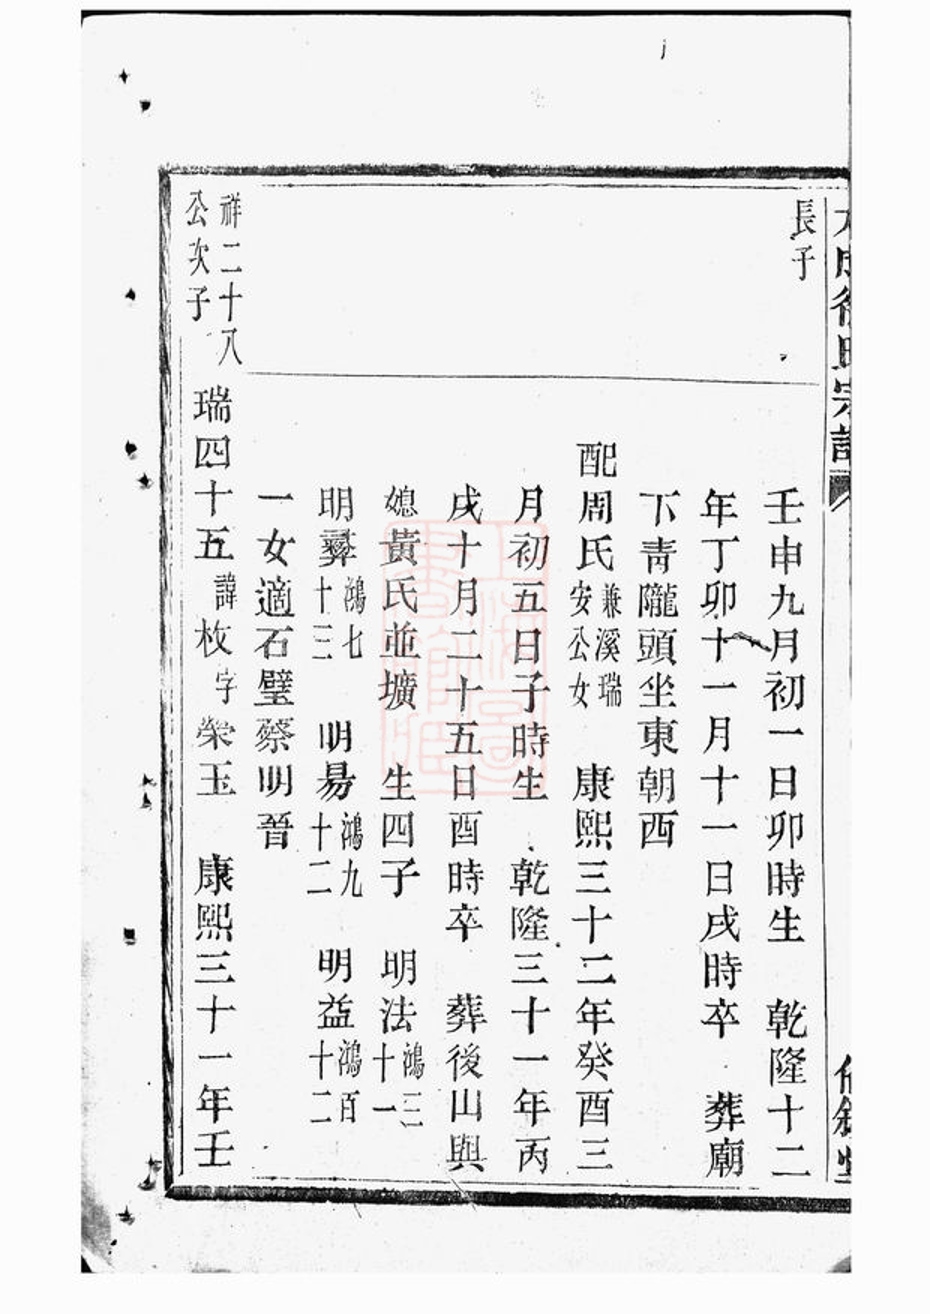 徐氏宗譜
長子
壬申九月初一日卯時生 乾隆十二
年丁卯十一月十一日戌時卒 葬廟
下靑隴頭坐東朝西
配周氏兼溪瑞安公女 康熙三十二年癸酉三
月初五日子時生 乾隆三十一年丙
戌十月二十五日酉時卒 葬後山與
媳黃氏並壙 生四子 明法鴻三十一
明彝鴻七十三 明易鴻九十二 明益鴻百十二
一女適石璧蔡明晉
祥二十八
公次子
瑞四十五諱枚字榮玉 康熙三十一年壬